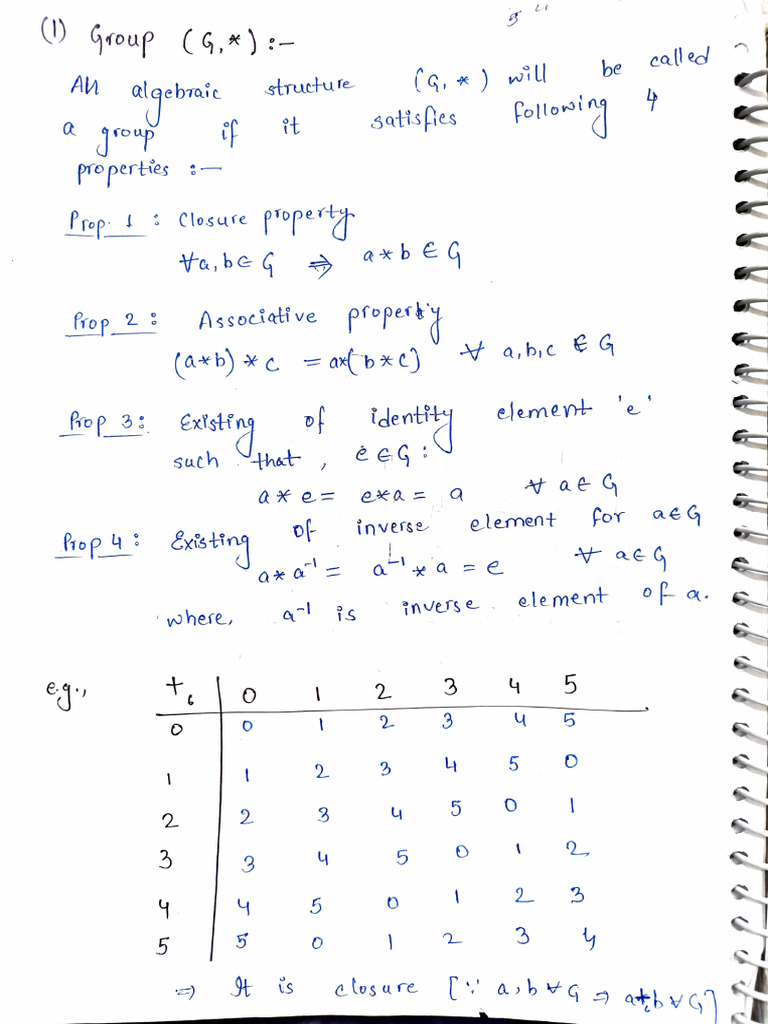 (1) Group (G, *) :-
An algebraic structure (G, *) will be called
a group if it satisfies following 4
properties :-
Prop. 1 : Closure property
∀a, b ∈ G ⇒ a * b ∈ G
Prop 2 : Associative property
(a*b) * c = a*(b*c) ∀ a,b,c ∈ G
Prop 3 : Existing of identity element 'e'
such that, e ∈ G :
a * e = e*a = a ∀ a ∈ G
Prop 4 : Existing of inverse element for a ∈ G
a * a⁻¹ = a⁻¹ * a = e ∀ a ∈ G
where, a⁻¹ is inverse element of a.
e.g., +₆ | 0 1 2 3 4 5
0 | 0 1 2 3 4 5
1 | 1 2 3 4 5 0
2 | 2 3 4 5 0 1
3 | 3 4 5 0 1 2
4 | 4 5 0 1 2 3
5 | 5 0 1 2 3 4
⇒ It is closure [∵ a, b ∀ G ⇒ a+₆b ∀ G]